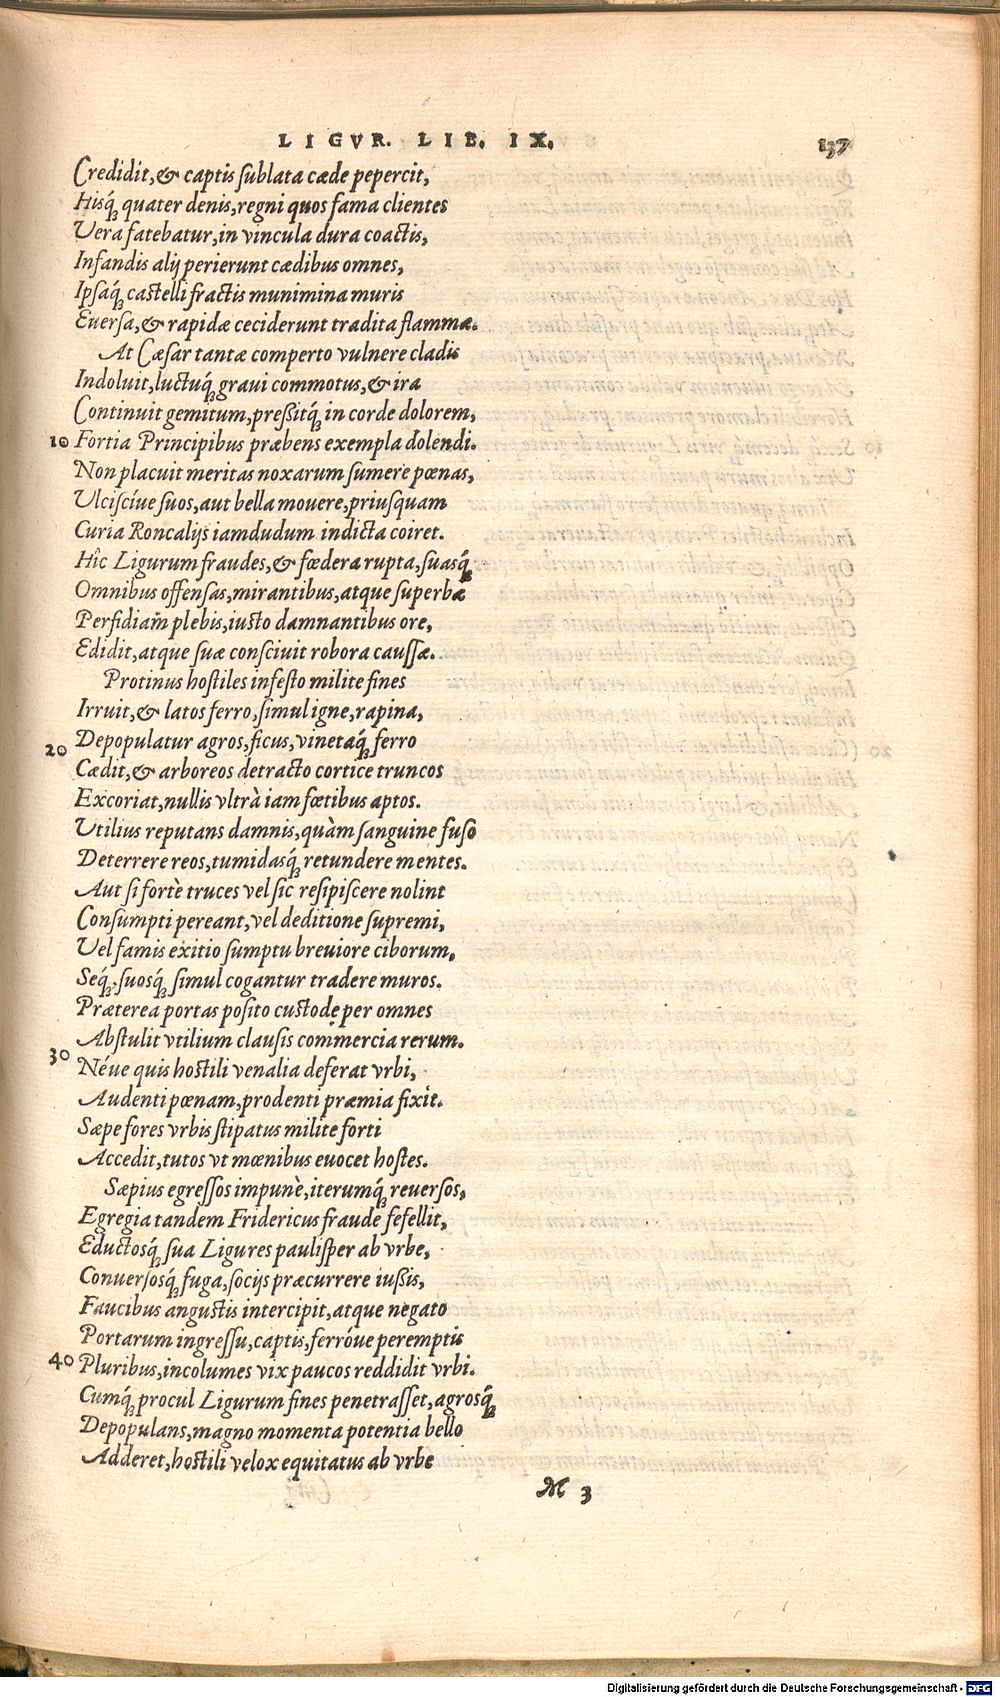 LIGVR. LIB. IX. 137
Credidit, & captis sublata cæde pepercit,
Hisq́; quater denis, regni quos fama clientes
Vera fatebatur, in vincula dura coactis,
Infandis alij perierunt cædibus omnes,
Ipsaq́; castelli fractis munimina muris
Euersa, & rapidæ ceciderunt tradita flammæ.
At Cæsar tantæ comperto vulnere cladis
Indoluit, luctuq́; graui commotus, & ira
Continuit gemitum, pressitq́; in corde dolorem,
10 Fortia Principibus præbens exempla dolendi.
Non placuit meritas noxarum sumere pœnas,
Vlcisciue suos, aut bella mouere, priusquam
Curia Roncalijs iamdudum indicta coiret.
Hîc Ligurum fraudes, & fœdera rupta, suasq́;
Omnibus offensas, mirantibus, atque superbæ
Perfidiam plebis, iusto damnantibus ore,
Edidit, atque suæ consciuit robora caussæ.
Protinus hostiles infesto milite fines
Irruit, & latos ferro, simul igne, rapina,
20 Depopulatur agros, ficus, vinetaq́; ferro
Cædit, & arboreos detracto cortice truncos
Excoriat, nullis vltrà iam fœtibus aptos.
Vtilius reputans damnis, quàm sanguine fuso
Deterrere reos, tumidasq́; retundere mentes.
Aut si fortè truces vel sic resipiscere nolint
Consumpti pereant, vel deditione supremi,
Vel famis exitio sumptu breuiore ciborum,
Seq́; suosq́; simul cogantur tradere muros.
Præterea portas posito custode per omnes
Abstulit vtilium clausis commercia rerum.
30 Néue quis hostili venalia deferat vrbi,
Audenti pœnam, prodenti præmia fixit.
Sæpe fores vrbis stipatus milite forti
Accedit, tutos vt mœnibus euocet hostes.
Sæpius egressos impunè, iterumq́; reuersos,
Egregia tandem Fridericus fraude fefellit,
Eductosq́; sua Ligures paulisper ab vrbe,
Conuersosq́; fuga, socijs præcurrere iussis,
Faucibus angustis intercipit, atque negato
Portarum ingressu, captis, ferroue peremptis
40 Pluribus, incolumes vix paucos reddidit vrbi.
Cumq́; procul Ligurum fines penetrasset, agrosq́;
Depopulans, magno momenta potentia bello
Adderet, hostili velox equitatus ab vrbe
M 3
Digitalisierung gefördert durch die Deutsche Forschungsgemeinschaft - DFG